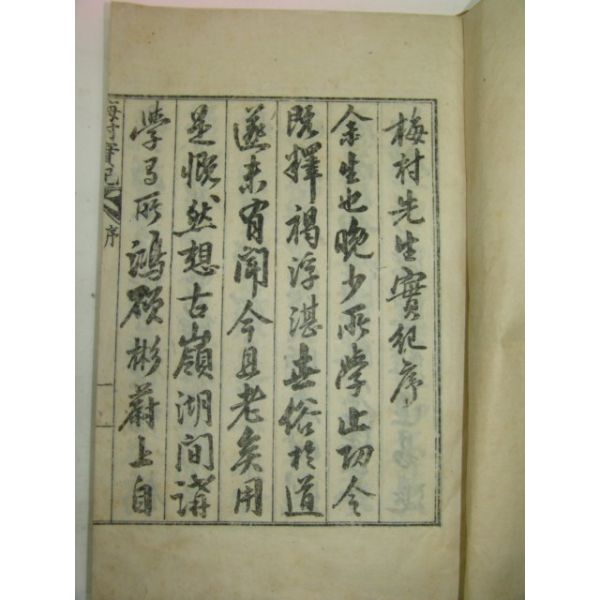 梅村先生實紀序
余生也晚少所學止功令
既釋褐浮湛世俗於道
邃未有聞今且老矣用
是慨然想古嶺湖間講
學之所鴻碩彬蔚上自
梅村實紀
序
一